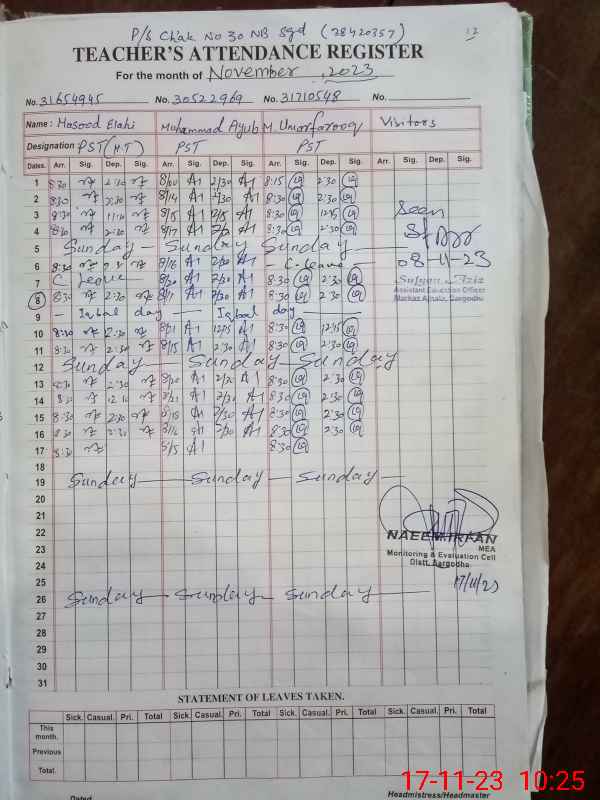 P/S Chak No 30 NB Sgd (28420357)
12
TEACHER'S ATTENDANCE REGISTER
For the month of November, 2023
No. 31654945 No. 30522969 No. 31710548 No.
Name: Masood Elahi Muhammad Ayub M. Umarfarooq Visitors
Designation PST (H.T) PST PST
Dates. Arr. Sig. Dep. Sig. Arr. Sig. Dep. Sig. Arr. Sig. Dep. Sig. Arr. Sig. Dep. Sig.
1 8:30 2:30 A1 2/30 A1 8:15 2:30
2 8:30 2:30 8/14 A1 A1 8:30 2:30
3 8:30 11:10 8/15 A1 A1 8:30 12:15
4 8:30 2:30 8/17 A1 A1 8:30 2:30
Seen
08-11-23
Sufyan Aziz
Assistant Education Officer
Markaz Ajnala, Sargodha
5 Sunday Sunday Sunday
6 8:30 8/16 A1 2/30 A1 C-Leave
7 C Leave 8/20 A1 2/30 A1 8:30 2:30
8 8:30 2:30 A1 2/30 A1 8:30 2:30
9 Iqbal day Iqbal day
10 8:30 2:30 8/21 A1 12/15 A1 8:30 12:15
11 8:30 2:30 8/15 A1 2:30 A1 8:30 2:30
12 Sunday Sunday Sunday
13 8:30 2:30 8/20 A1 A1 8:30 2:30
14 8:30 12:10 8/21 A1 2/30 A1 8:30 2:30
15 8:30 2:30 8/18 A1 2/30 A1 8:30 2:30
16 8:30 2:31 8/16 A1 2/30 A1 8:30 2:30
17 8:30 8/15 A1 8:30
18
19 Sunday Sunday Sunday
20
21
22
23
24
25
NAEEM IRFAN
MEA
Monitoring & Evaluation Cell
Distt. Sargodha
17/11/23
26 Sunday Sunday Sunday
27
28
29
30
31
STATEMENT OF LEAVES TAKEN.
Sick. Casual. Pri. Total Sick. Casual. Pri. Total Sick. Casual. Pri. Total Sick. Casual. Pri. Total
This month.
Previous
Total.
Dated
Headmistress/Headmaster
17-11-23 10:25